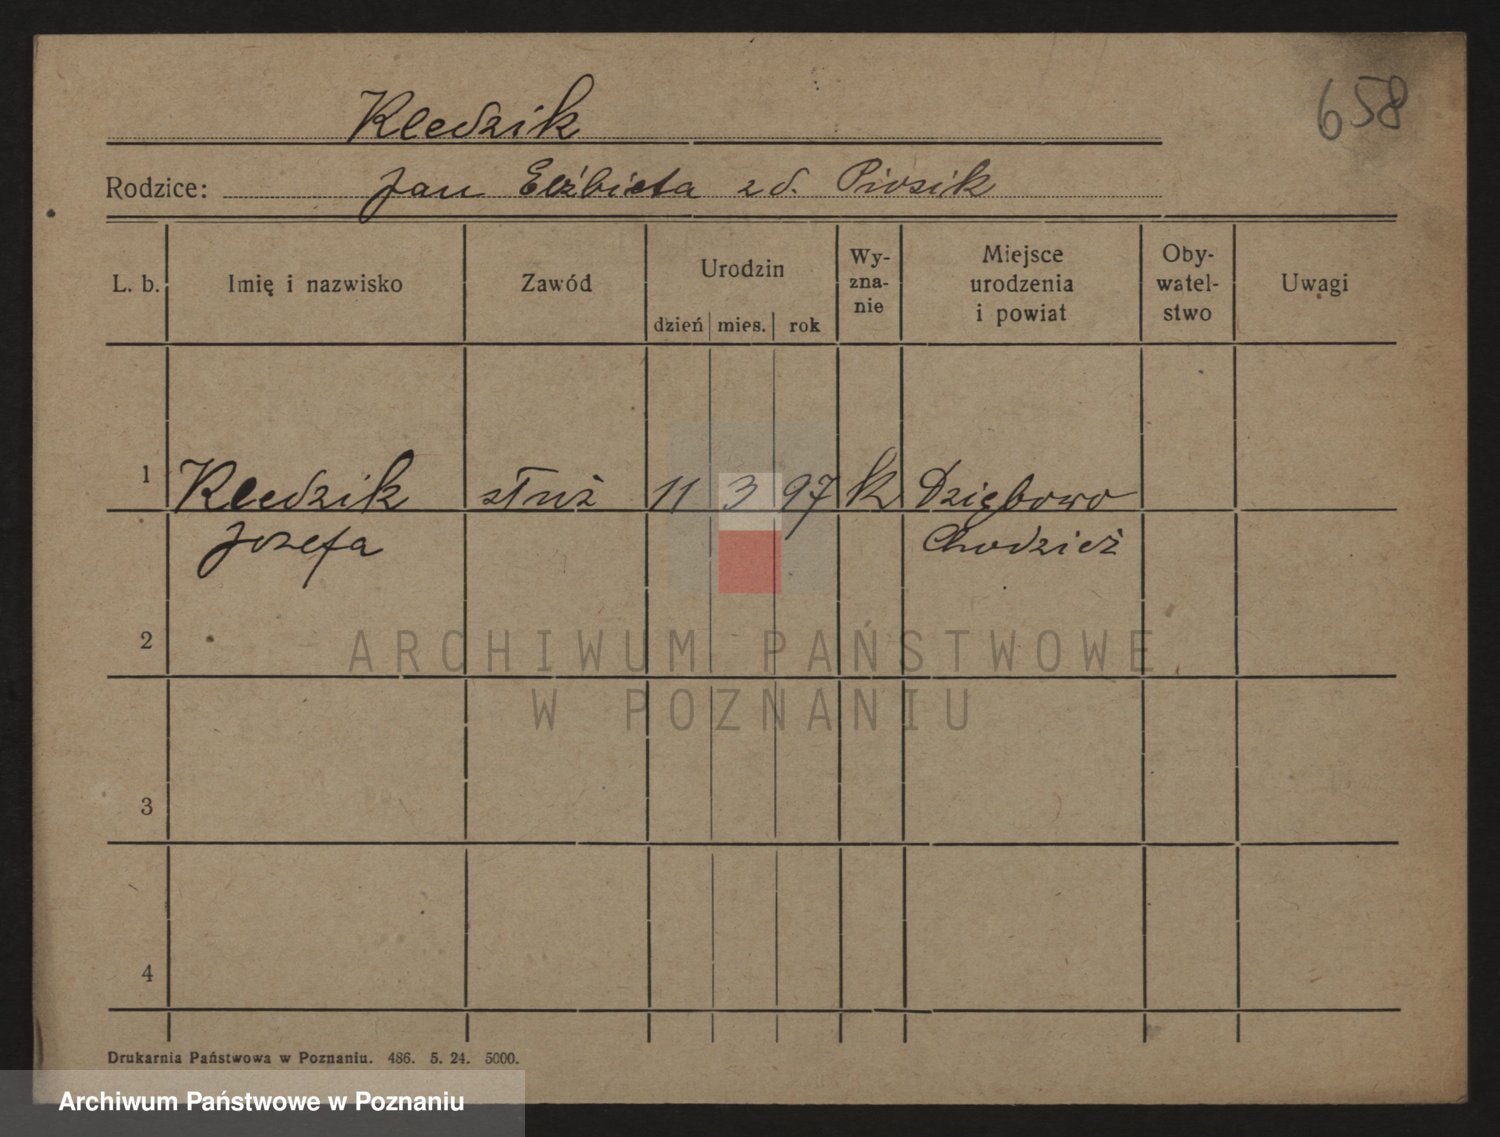 658
Kledzik
Rodzice: Jan Elżbieta zd. Piosik
L. b. Imię i nazwisko Zawód Urodzin dzień mies. rok Wy-zna-nie Miejsce urodzenia i powiat Oby-watel-stwo Uwagi
1 Kledzik służ 11 3 97 k Dziębowo
Józefa Chodzież
2
ARCHIWUM PAŃSTWOWE
W POZNANIU
3
4
Drukarnia Państwowa w Poznaniu. 486. 5. 24. 5000.
Archiwum Państwowe w Poznaniu